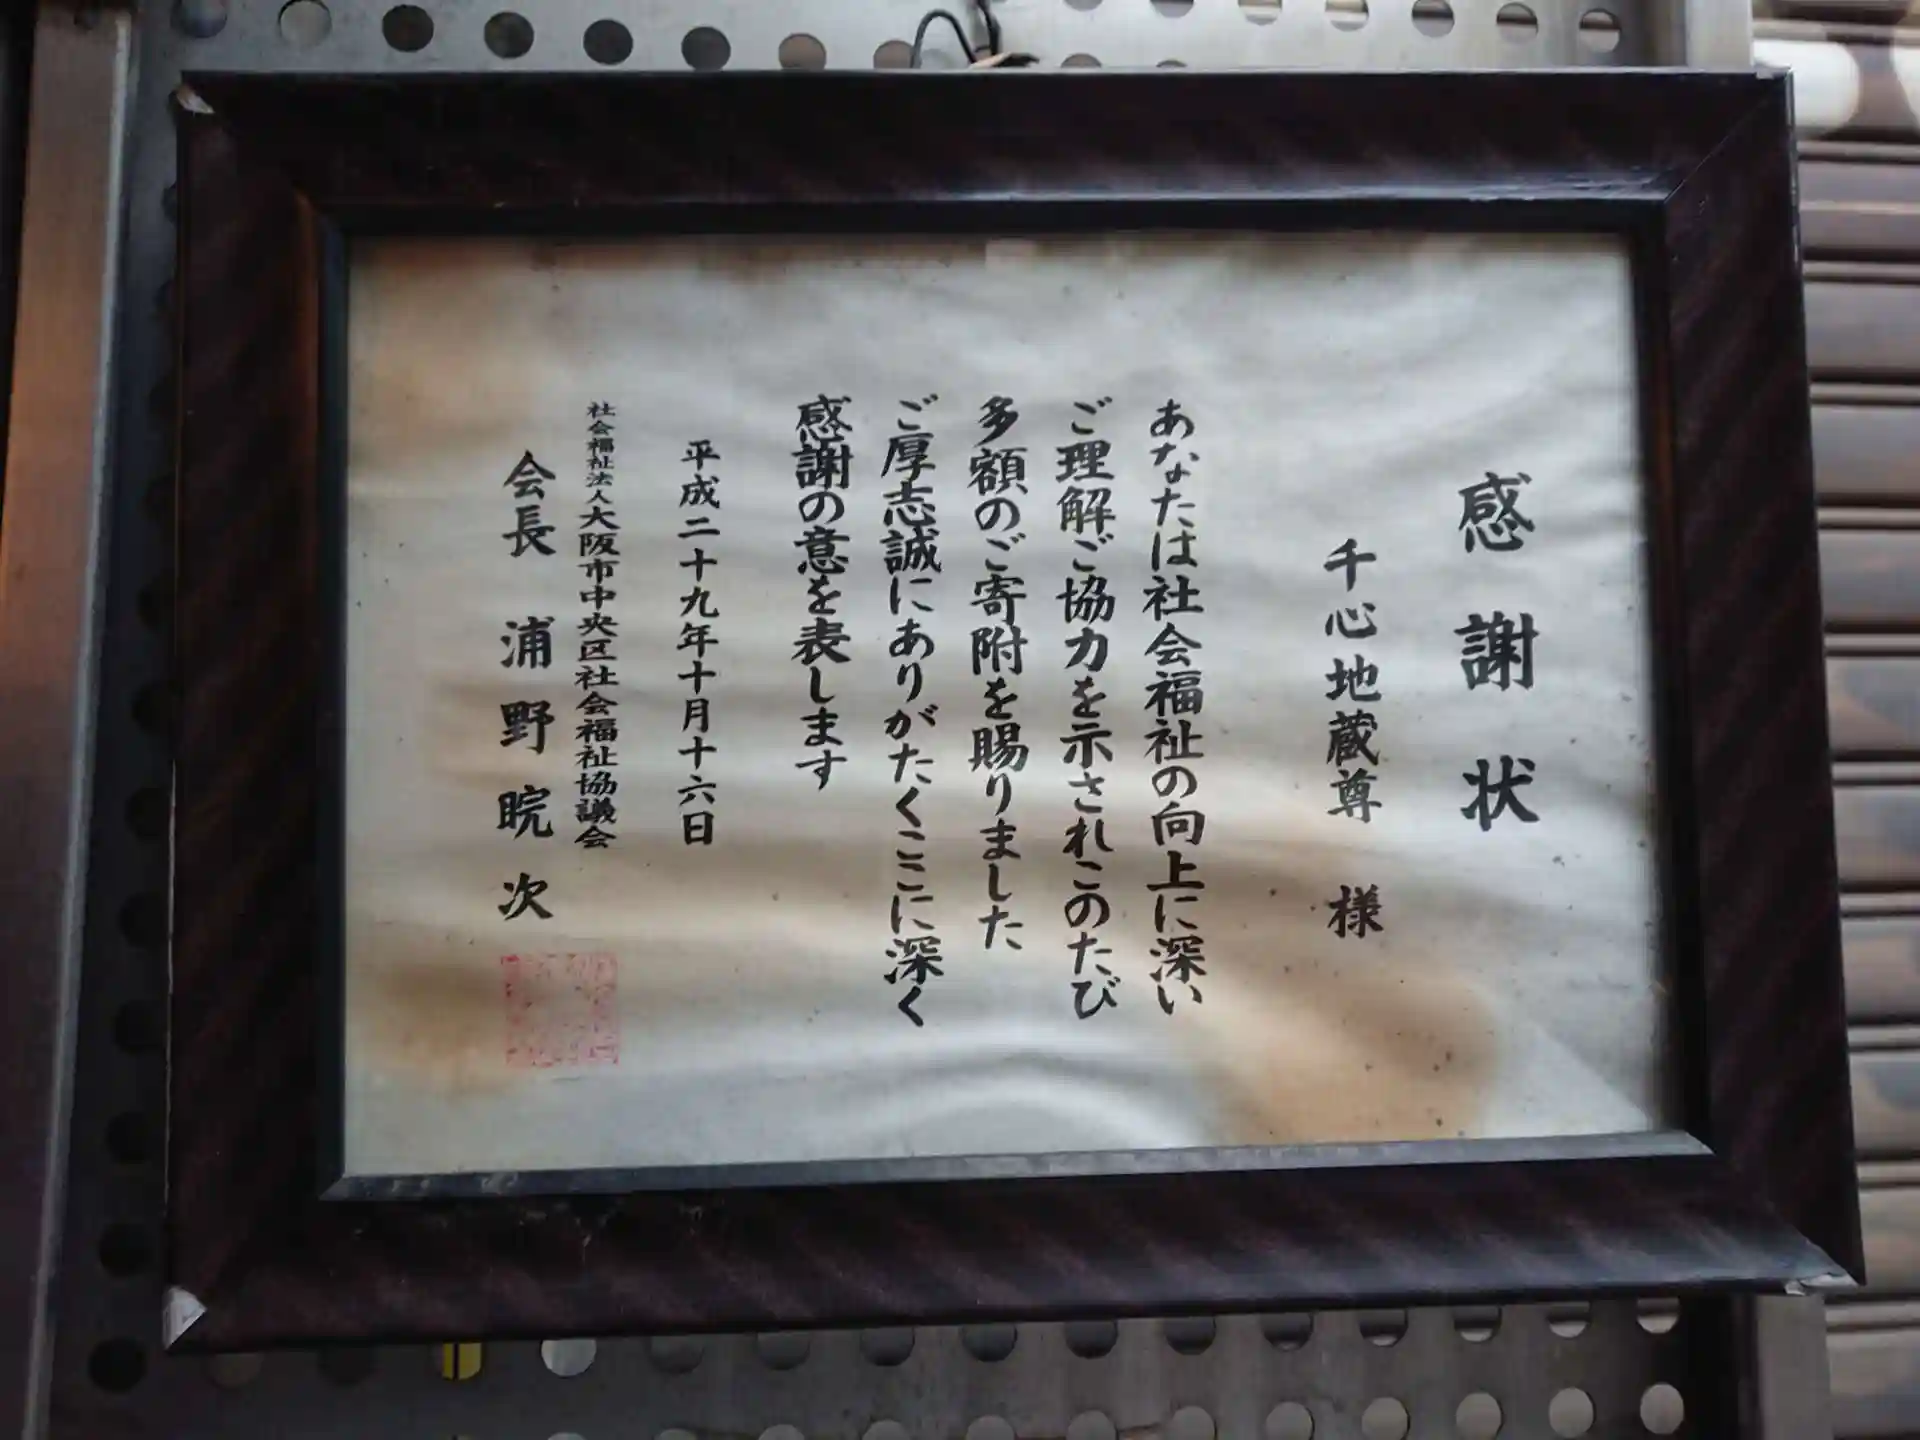 感謝状
千心地蔵尊 様
あなたは社会福祉の向上に深い
ご理解ご協力を示されこのたび
多額のご寄附を賜りました
ご厚志誠にありがたくここに深く
感謝の意を表します
平成二十九年十月十六日
社会福祉法人大阪市中央区社会福祉協議会
会長 浦野晥次